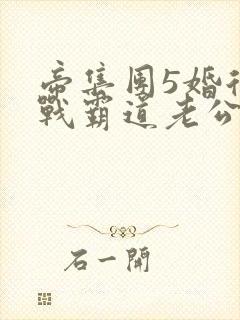 帝集團5婚後
戰霸道老公
石一開